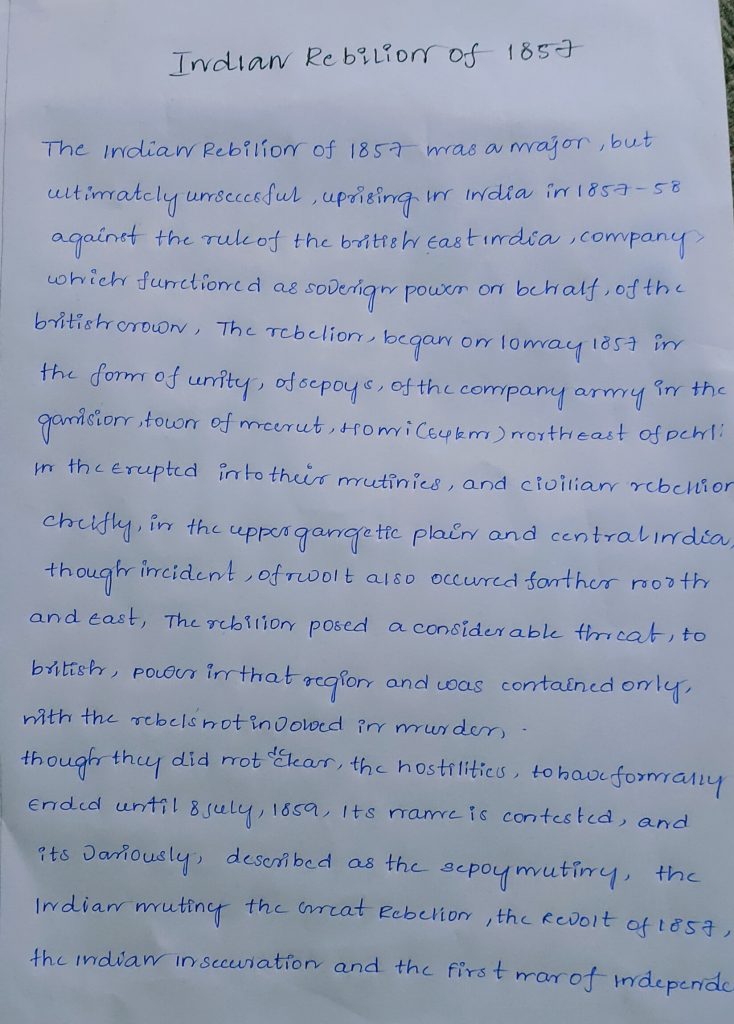 Indian Rebilion of 1857
The indian Rebilion of 1857 was a major, but
ultimately unseccesful, uprising in india in 1857-58
against the rule of the british east india, company
which functioned as soverign power on behalf, of the
british crown, The rebelion, began on 10 may 1857 in
the form of unity, of sepoys, of the company army in the
garrision, town of meerut, 40 mi (64km) northeast of Dehli
in the Erupted into their mutinies, and civilian rebellion
cheifly, in the upper gangetic plain and central india,
though incident, of rwolt also occured farther north
and east, The rebilion posed a considerable threat, to
british, power in that region and was contained only,
with the rebels not involved in murder,
though they did not declear, the hostilities, to have formally
Ended until 8 July, 1859, Its name is contested, and
its variously, described as the sepoy mutiny, the
Indian mutiny the Great Rebelion, the Revolt of 1857,
the indian inseccuration and the first war of independe